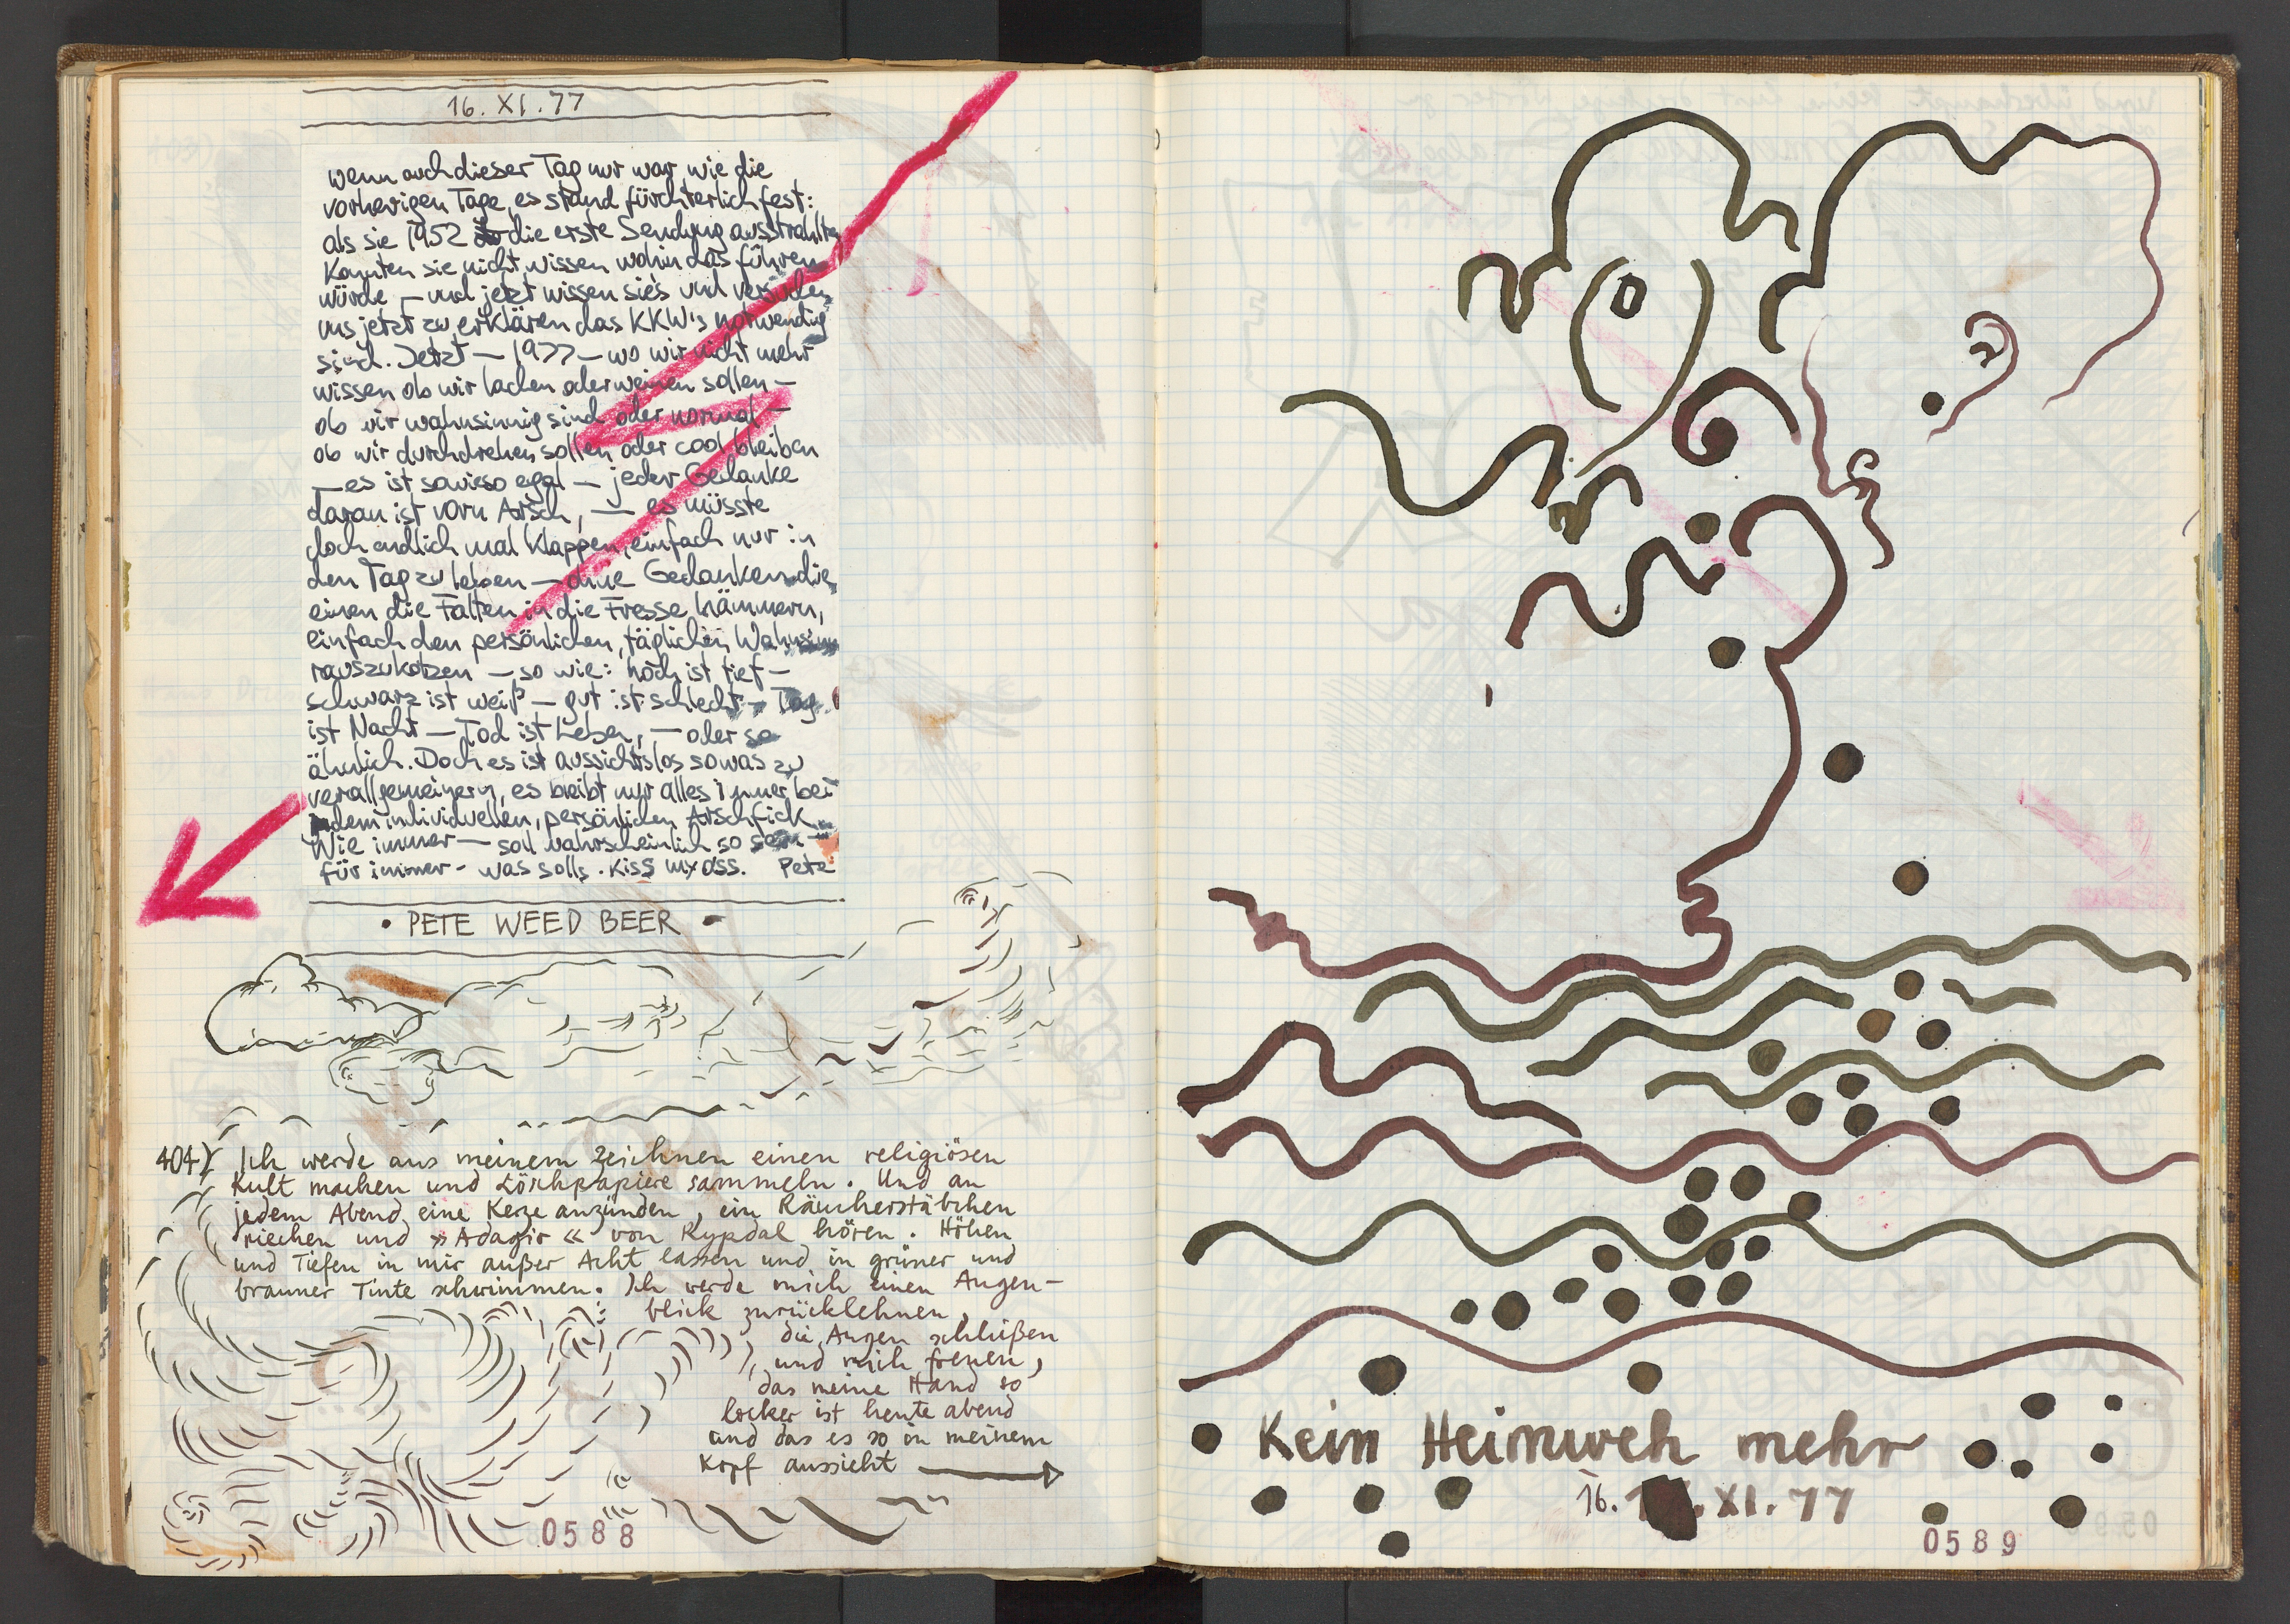 16. XI. 77
wenn auch dieser Tag nur war wie die
vorherigen Tage, es stand fürchterlich fest:
als sie 1952 die erste Sendung ausstrahlten
konnten sie nicht wissen wohin das führen
würde — und jetzt wissen sie's und versuchen
uns jetzt zu erklären das KKW's notwendig
sind. Jetzt — 1977 — wo wir nicht mehr
wissen ob wir lachen oder weinen sollen —
ob wir wahnsinnig sind oder normal —
ob wir durchdrehen sollen oder cool bleiben
— es ist sowieso egal — jeder Gedanke
daran ist vorn Arsch, — es müsste
doch endlich mal klappen, einfach nur in
den Tag zu leben — ohne Gedanken die
einen die Falten in die Fresse hämmern,
einfach den persönlichen, täglichen Wahnsinn
rauszukotzen — so wie: hoch ist tief —
schwarz ist weiß — gut ist schlecht — Tag
ist Nacht — Tod ist Leben, — oder so
ähnlich. Doch es ist aussichtslos sowas zu
verallgemeinern, es bleibt nur alles immer bei
dem individuellen, persönlichen Arschfick
Wie immer — soll wahrscheinlich so sein —
für immer - was solls. Kiss my ass. Pete
• PETE WEED BEER •
404) Ich werde aus meinem Zeichnen einen religiösen
Kult machen und Löschpapiere sammeln. Und an
jedem Abend eine Kerze anzünden, ein Räucherstäbchen
riechen und »Adagio« von Rypdal hören. Höhen
und Tiefen in mir außer Acht lassen und in grüner und
brauner Tinte schwimmen. Ich werde mich einen Augen-
blick zurücklehnen,
die Augen schlißen
und mich freuen,
das meine Hand so
locker ist heute abend
und das es so in meinem
Kopf aussieht
0588
Kein Heimweh mehr
16. XI. 77
0589